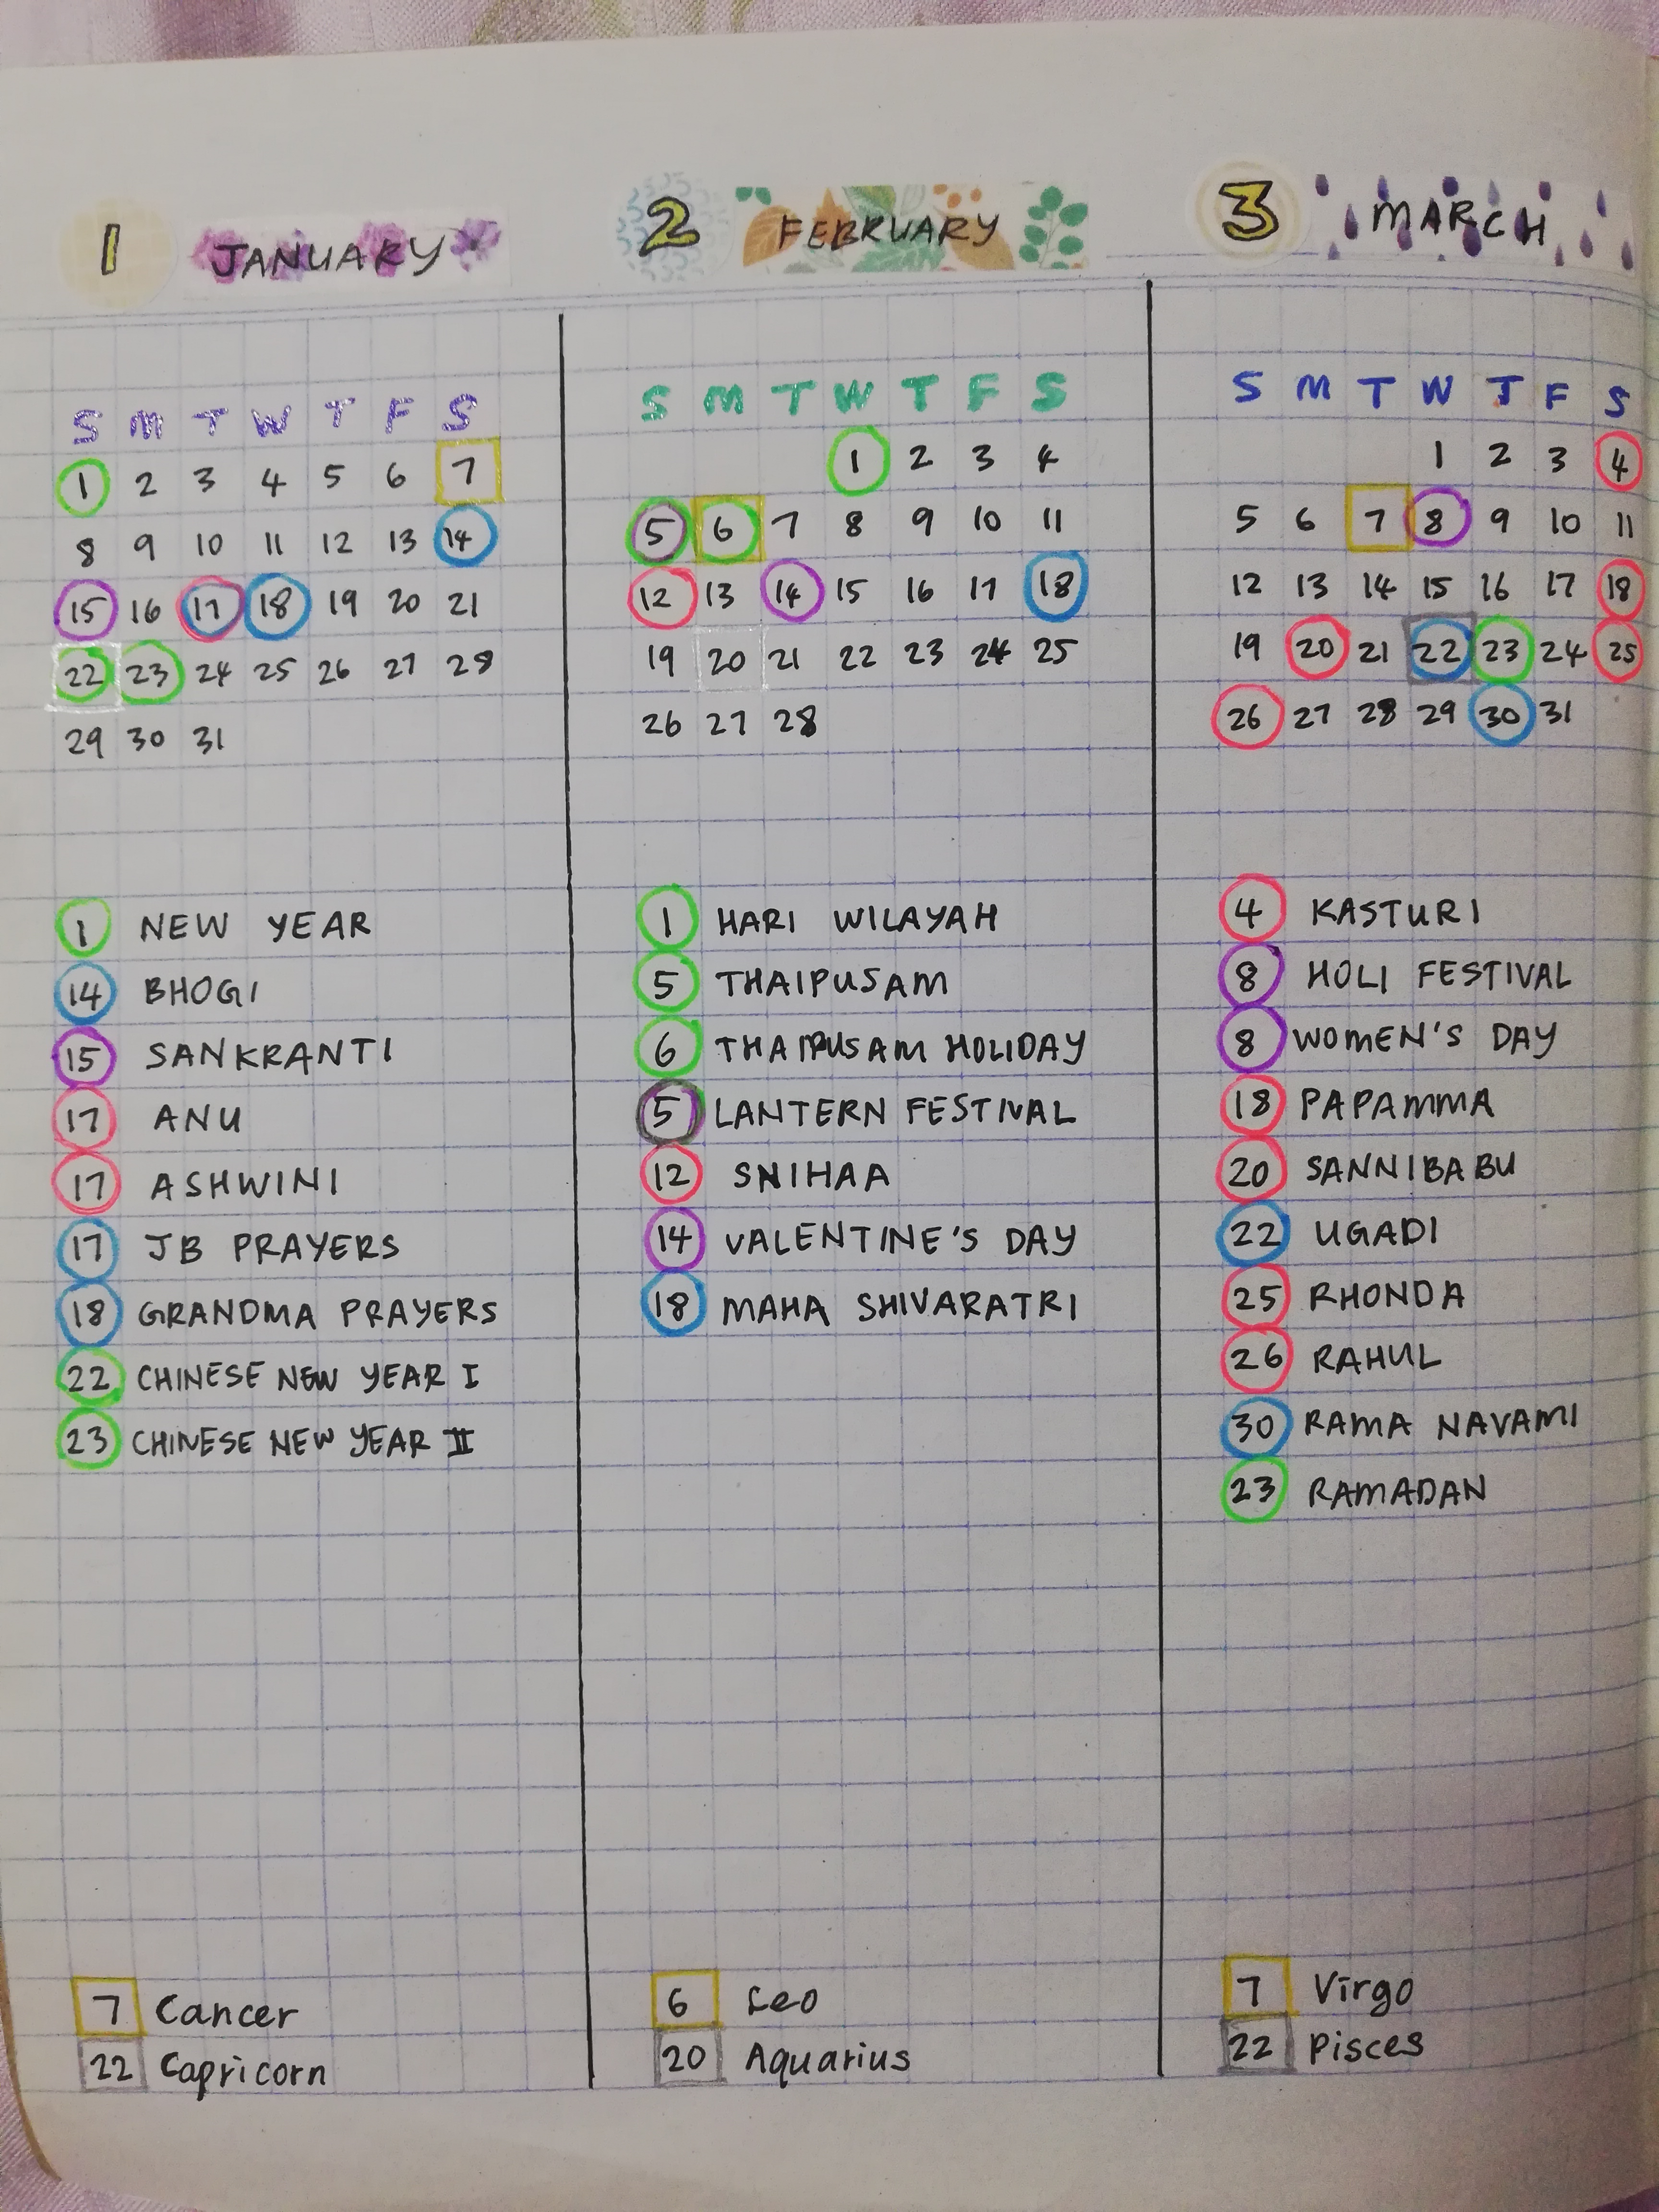 1 JANUARY
S M T W T F S
1 2 3 4 5 6 7
8 9 10 11 12 13 14
15 16 17 18 19 20 21
22 23 24 25 26 27 28
29 30 31
1 NEW YEAR
14 BHOGI
15 SANKRANTI
17 ANU
17 ASHWINI
17 JB PRAYERS
18 GRANDMA PRAYERS
22 CHINESE NEW YEAR I
23 CHINESE NEW YEAR II
7 Cancer
22 Capricorn
2 FEBRUARY
S M T W T F S
1 2 3 4
5 6 7 8 9 10 11
12 13 14 15 16 17 18
19 20 21 22 23 24 25
26 27 28
1 HARI WILAYAH
5 THAIPUSAM
6 THAIPUSAM HOLIDAY
5 LANTERN FESTIVAL
12 SNIHAA
14 VALENTINE'S DAY
18 MAHA SHIVARATRI
6 Leo
20 Aquarius
3 MARCH
S M T W T F S
1 2 3 4
5 6 7 8 9 10 11
12 13 14 15 16 17 18
19 20 21 22 23 24 25
26 27 28 29 30 31
4 KASTURI
8 HOLI FESTIVAL
8 WOMEN'S DAY
18 PAPAMMA
20 SANNIBABU
22 UGADI
25 RHONDA
26 RAHUL
30 RAMA NAVAMI
23 RAMADAN
7 Virgo
22 Pisces